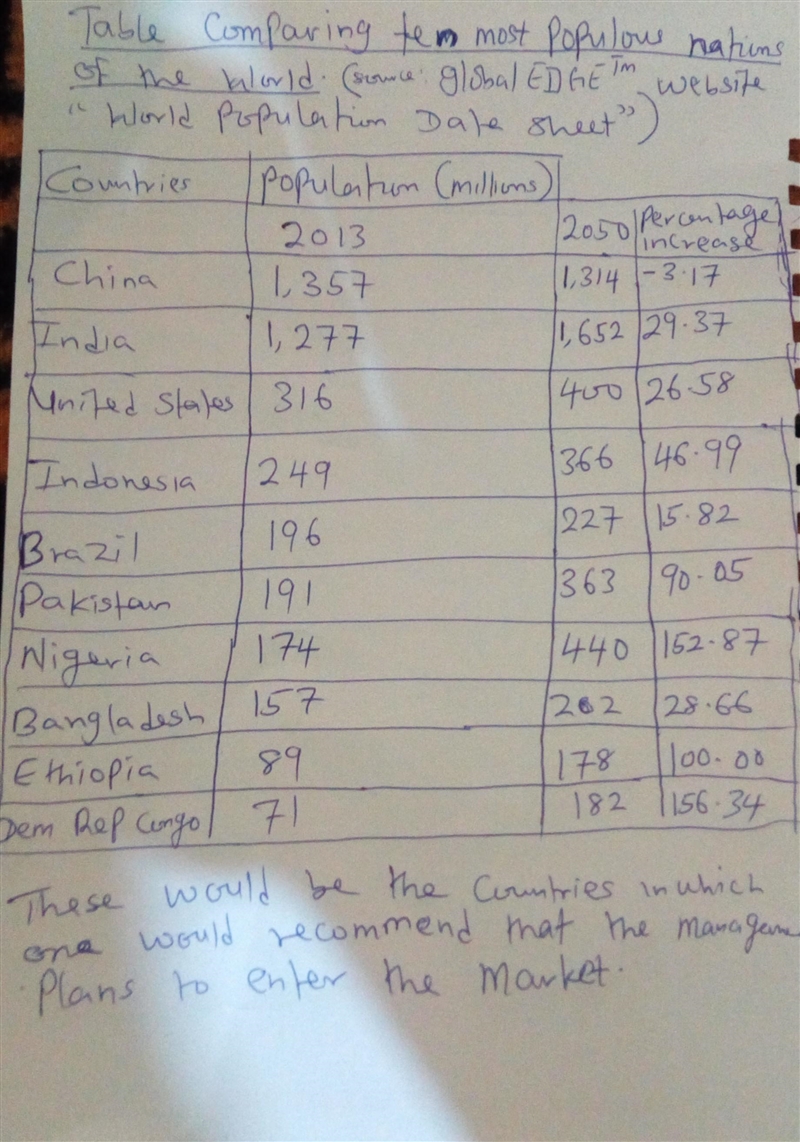 Table Comparing ten most populous nations
of the World. (source: global EDGE™ website
"World Population Date sheet")
Countries Population (millions)
2013 2050 Percentage increase
China 1,357 1,314 -3.17
India 1,277 1,652 29.37
United States 316 400 26.58
Indonesia 249 366 46.99
Brazil 196 227 15.82
Pakistan 191 363 90.05
Nigeria 174 440 152.87
Bangladesh 157 202 28.66
Ethiopia 89 178 100.00
Dem Rep Congo 71 182 156.34
These would be the Countries in which
one would recommend that the manageme
Plans to enter the market.